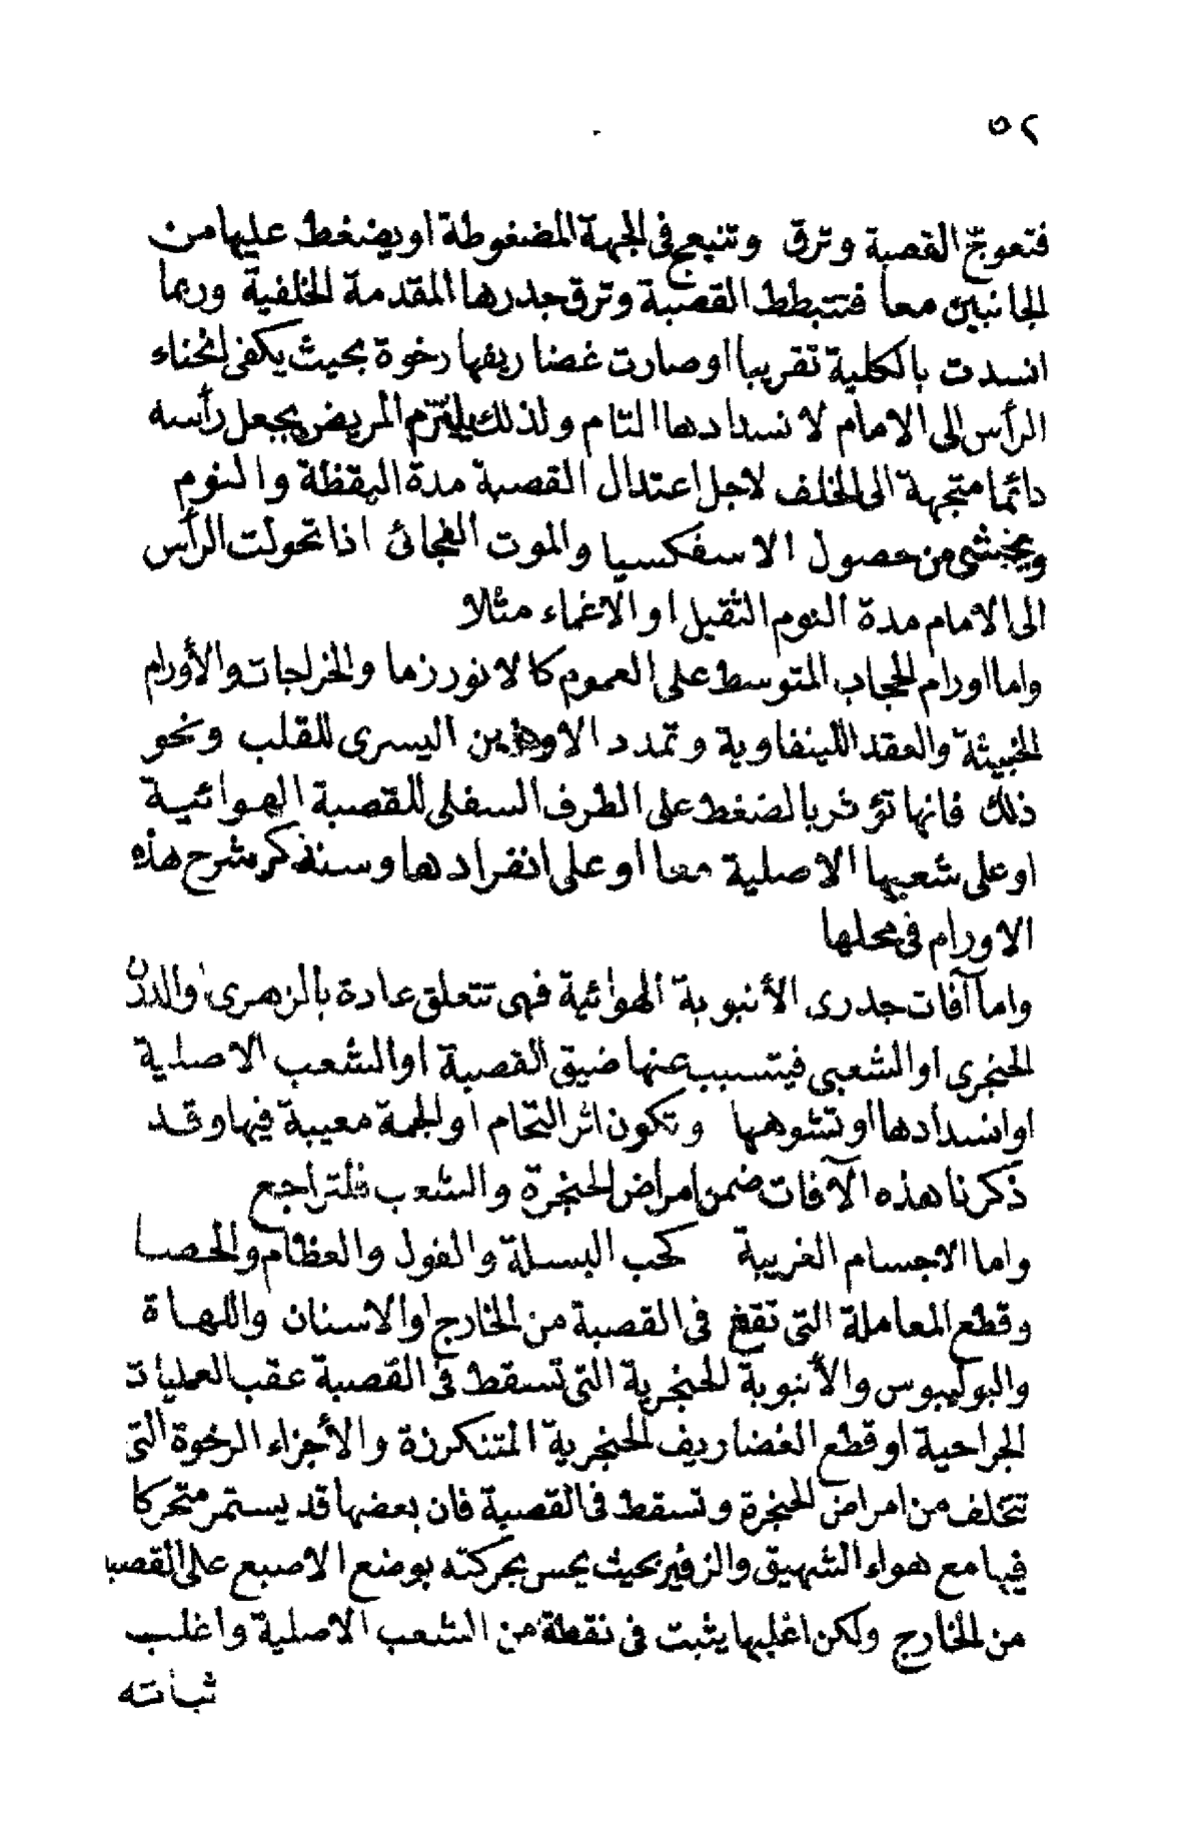 ٥٢
فتعوجّ القصبة وترق وتنبعج فى الجهة المضغوطة او يضغط عليها من
الجانبين معا فتتبطط القصبة وترق جدرها المقدمة الخلفية وربما
انسدت بالكلية تقريبا او صارت غضاريفها رخوة بحيث يكفى انحناء
الرأس الى الامام لانسدادها التام ولذلك يلتزم المريض بجعل رأسه
دائما متجهة الى الخلف لاجل اعتدال القصبة مدة اليقظة والنوم
ويخشى من حصول الاسفكسيا والموت الفجائى اذا تحولت الرأس
الى الامام مدة النوم الثقيل او الاغماء مثلا
واما اورام الحجاب المتوسط على العموم كالانورزما والخراجات والأورام
الخبيثة والعقد اللينفاوية وتمدد الاوذين اليسرى للقلب ونحو
ذلك فانها تؤثر بالضغط على الطرف السفلى للقصبة الهوائية
او على شعبها الاصلية معا او على انفرادها وسنذكر شرح هذه
الاورام فى محلها
واما آفات جدرى الأنبوبة الهوائية فهى تتعلق عادة بالزهرى والدرن
الحنجرى او الشعبى فيتسبب عنها ضيق القصبة او الشعب الاصلية
او انسدادها او تشوهها وتكون اثر التحام او لجمة معيبة فيها وقد
ذكرنا هذه الآفات ضمن امراض الحنجرة والشعب فلتراجع
واما الاجسام الغريبة كحب البسلة والفول والعظام والحصا
وقطع المعاملة التى تقع فى القصبة من الخارج او الاسنان واللهاة
والبوليبوس والأنبوبة الحنجرية التى تسقط فى القصبة عقب العمليات
الجراحية او قطع الغضاريف الحنجرية المتنكرزة والأجزاء الرخوة التى
تتخلف من امراض الحنجرة وتسقط فى القصبة فان بعضها قد يستمر متحركا
فيها مع هواء الشهيق والزفير بحيث يحس بحركته بوضع الاصبع على القصبة
من الخارج ولكن اغلبها يثبت فى نقطة من الشعب الاصلية واغلب
ثباته